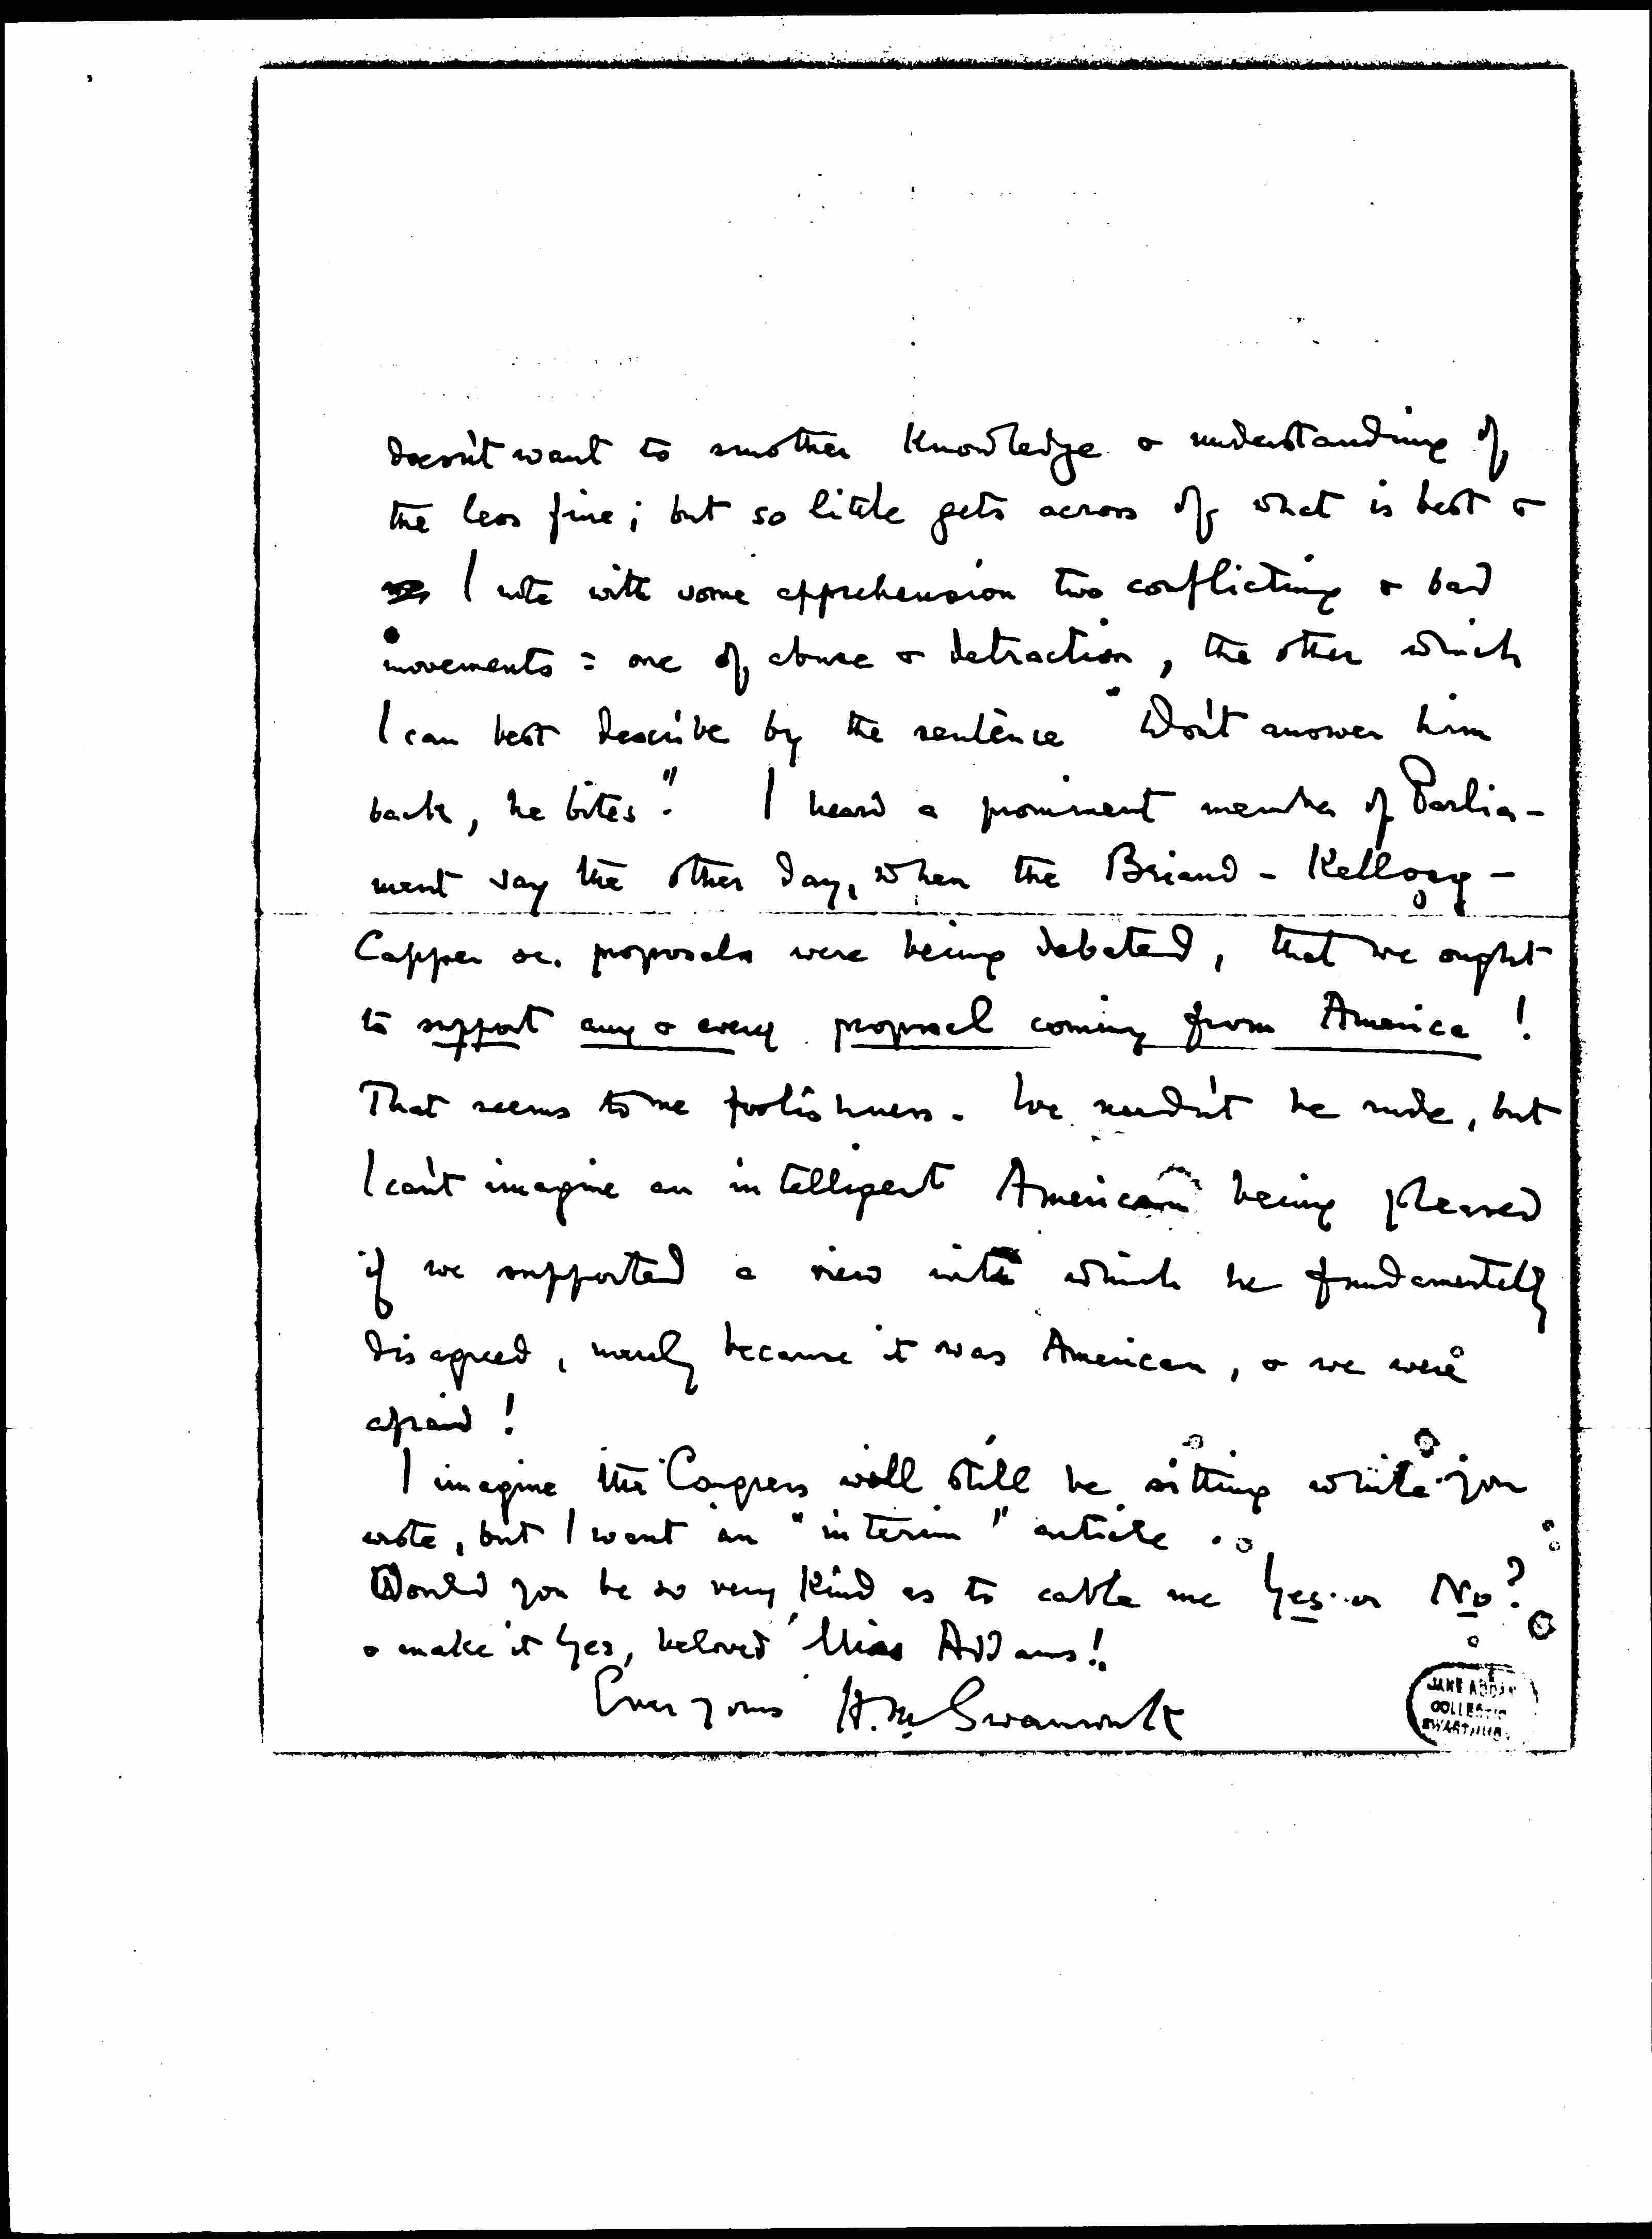 doesn't want to smother knowledge & understanding of
the less fine; but so little gets across of what is best &
I note with some apprehension two conflicting & bad
movements = one of abuse & detraction, the other which
I can best describe by the sentence "Don't answer him
back, he bites." I heard a prominent member of Parlia-
ment say the other day, when the Briand - Kellogg -
Capper &c. proposals were being debated, that we ought
to support any & every proposal coming from America!
That seems to me foolishness. We needn't be rude, but
I can't imagine an intelligent American being pleased
if we supported a view with which he fundamentally
disagreed, merely because it was American, & we were
afraid!
I imagine the Congress will still be sitting while you
write, but I want an "interim" article.
Would you be so very kind as to cable me Yes or No?
& make it Yes, beloved Miss Addams!
Ever yours H.M. Swanwick
JANE ADDAM
COLLECTIO
SWARTHMO